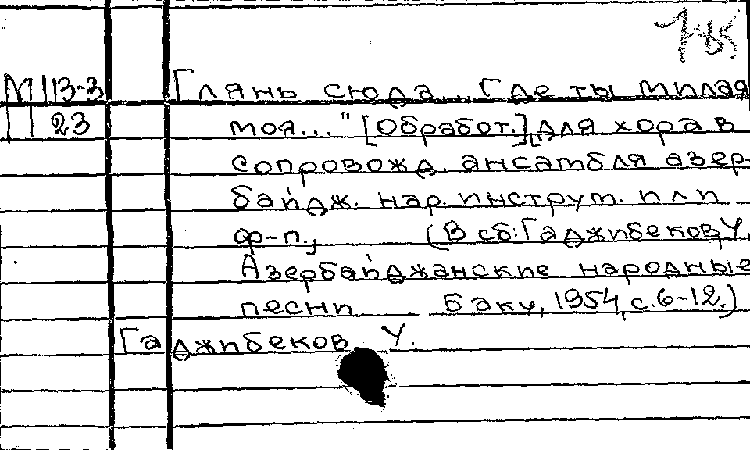 785
М 13-3 Глянь сюда... Где ты милая
П 23 моя..." [Обработ.] для хора в
сопровожд. ансамбля азер-
байдж. нар. инструм. или
ф-п., (В сб: Гаджибеков У.
Азербайджанские народные
песни Баку, 1954, с. 6-12.)
Гаджибеков У.